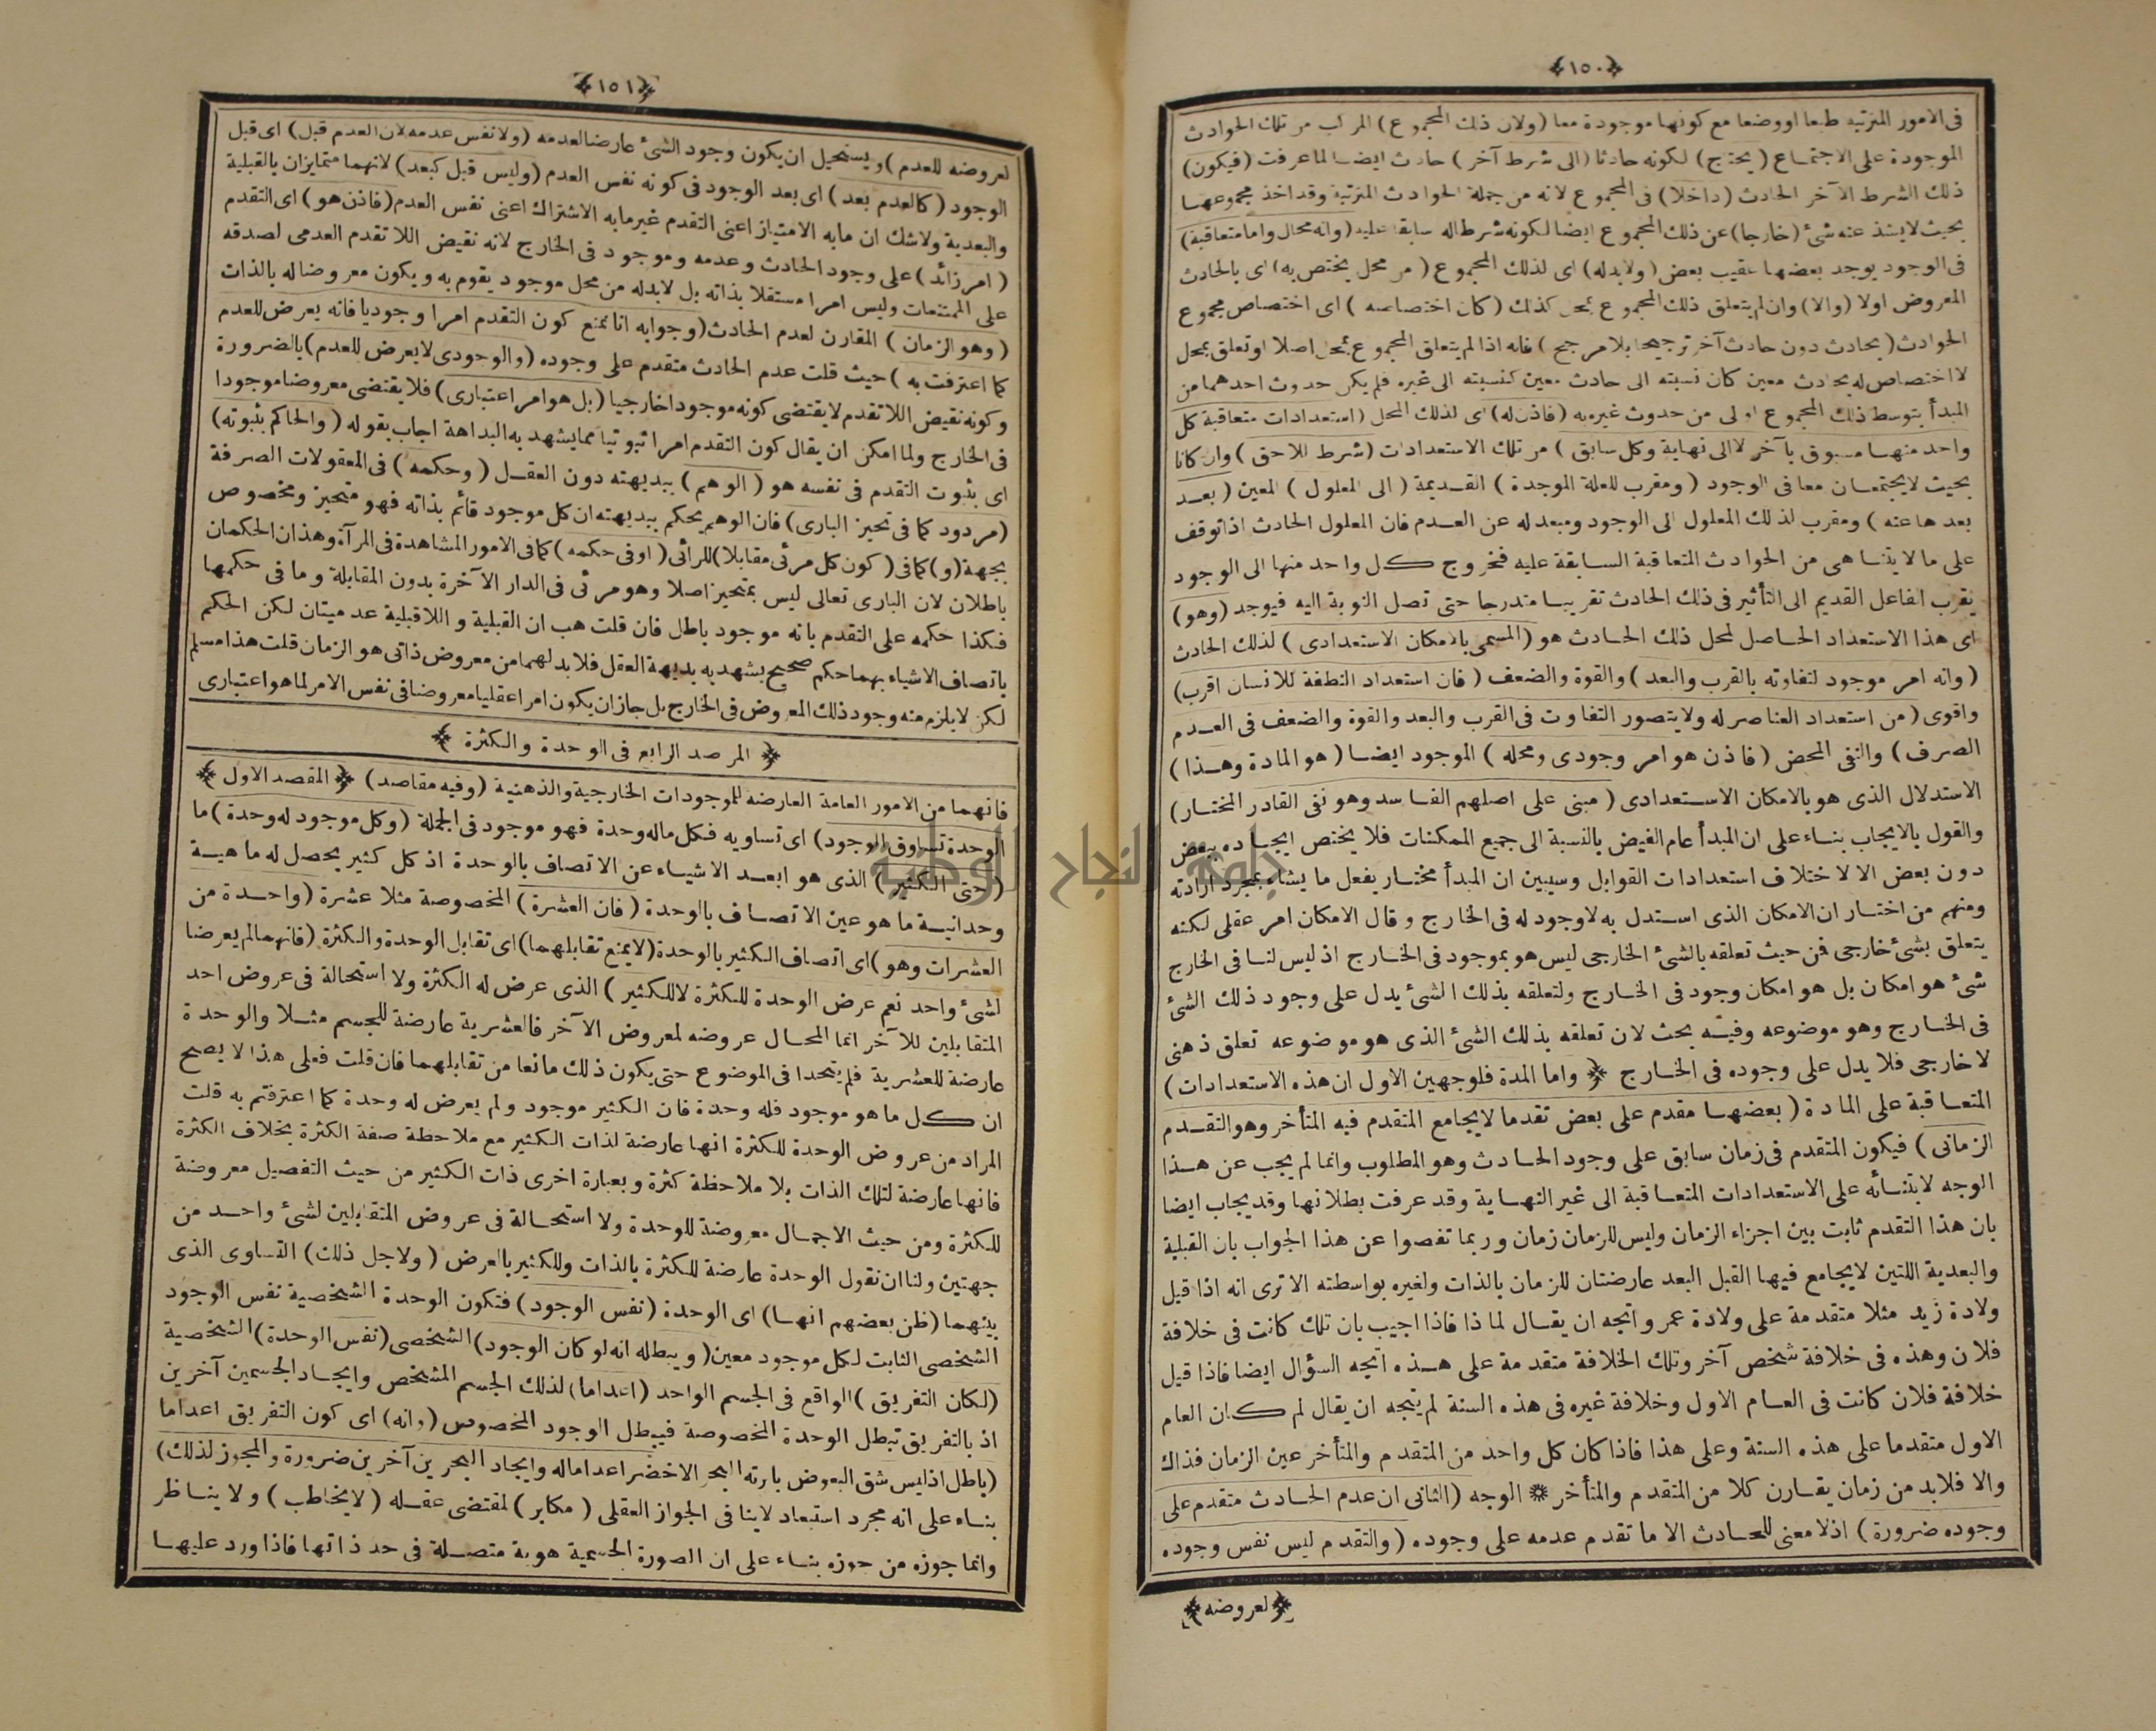 ﴿١٥٠﴾
فى الامور المترتبة طبعا او وضعا مع كونها موجودة معا (ولان ذلك المجموع) المركب من تلك الحوادث
الموجودة على الاجتماع (يحتاج) لكونه حادثا (الى شرط آخر) حادث ايضا لما عرفت (فيكون)
ذلك الشرط الآخر الحادث (داخلا) فى المجموع لانه من جملة الحوادث المترتبة وقد اخذ مجموعها
بحيث لا يشذ عنه شئ (خارجا) عن ذلك المجموع ايضا لكونه شرطا له سابقا عليه (وانه محال واما متعاقبة)
فى الوجود يوجد بعضها عقيب بعض (ولا بد له) اى لذلك المجموع (من محل يختص به) اى بالحادث
المعروض اولا (والا) وان لم يتعلق ذلك المجموع بمحل كذلك (كان اختصاصه) اى اختصاص مجموع
الحوادث (بحادث دون حادث آخر ترجيحا بلا مرجح) فانه اذا لم يتعلق المجموع بمحل اصلا او تعلق بمحل
لا اختصاص له بحادث معين كان نسبته الى حادث معين كنسبته الى غيره فلم يكن حدوث احدهما من
المبدأ بتوسط ذلك المجموع اولى من حدوث غيره به (فاذن له) اى لذلك المحل (استعدادات متعاقبة كل
واحد منها مسبوق بآخر لا الى نهاية وكل سابق) من تلك الاستعدادات (شرط للاحق) وان كانا
بحيث لا يجتمعان معا فى الوجود (ومقرب للعلة الموجدة) القديمة (الى المعلول) المعين (بعد
بعدها عنه) ومقرب لذلك المعلول الى الوجود ومبعد له عن العدم فان المعلول الحادث اذا توقف
على ما لا يتناهى من الحوادث المتعاقبة السابقة عليه فخروج كل واحد منها الى الوجود
يقرب الفاعل القديم الى التأثير فى ذلك الحادث تقريبا متدرجا حتى تصل النوبة اليه فيوجد (وهو)
اى هذا الاستعداد الحاصل لمحل ذلك الحادث هو (المسمى بالامكان الاستعدادى) لذلك الحادث
(وانه امر موجود لتفاوته بالقرب والبعد) والقوة والضعف (فان استعداد النطفة للانسان اقرب)
واقوى (من استعداد العناصر له ولا يتصور التفاوت فى القرب والبعد والقوة والضعف فى العدم
الصرف) والنفى المحض (فاذن هو امر وجودى ومحله) الموجود ايضا (هو المادة وهذا)
الاستدلال الذى هو بالامكان الاستعدادى (مبنى على اصلهم الفاسد وهو نفى القادر المختار)
والقول بالايجاب بناء على ان المبدأ عام الفيض بالنسبة الى جميع الممكنات فلا يختص ايجاده ببعض
دون بعض الا لاختلاف استعدادات القوابل وسيبين ان المبدأ مختار يفعل ما يشاء بمجرد ارادته
ومنهم من اختار ان الامكان الذى استدل به لا وجود له فى الخارج وقال الامكان امر عقلى لكنه
يتعلق بشئ خارجى فمن حيث تعلقه بالشئ الخارجى ليس هو بموجود فى الخارج اذ ليس لنا فى الخارج
شئ هو امكان بل هو امكان وجود فى الخارج ولتعلقه بذلك الشئ يدل على وجود ذلك الشئ
فى الخارج وهو موضوعه وفيه بحث لان تعلقه بذلك الشئ الذى هو موضوعه تعلق ذهنى
لا خارجى فلا يدل على وجوده فى الخارج ﴿ واما المدة فلوجهين الاول ان هذه الاستعدادات)
المتعاقبة على المادة (بعضها مقدم على بعض تقدما لا يجامع المتقدم فيه المتأخر وهو التقدم
الزمانى) فيكون المتقدم فى زمان سابق على وجود الحادث وهو المطلوب وانما لم يجب عن هذا
الوجه لابتنائه على الاستعدادات المتعاقبة الى غير النهاية وقد عرفت بطلانها وقد يجاب ايضا
بان هذا التقدم ثابت بين اجزاء الزمان وليس للزمان زمان وربما تفصوا عن هذا الجواب بان القبلية
والبعدية اللتين لا يجامع فيها القبل البعد عارضتان للزمان بالذات ولغيره بواسطته الا ترى انه اذا قيل
ولادة زيد مثلا متقدمة على ولادة عمرو اتجه ان يقال لماذا فاذا اجيب بان تلك كانت فى خلافة
فلان وهذه فى خلافة شخص آخر وتلك الخلافة متقدمة على هذه اتجه السؤال ايضا فاذا قيل
خلافة فلان كانت فى العام الاول وخلافة غيره فى هذه السنة لم يتجه ان يقال لم كان العام
الاول متقدما على هذه السنة وعلى هذا فاذا كان كل واحد من المتقدم والمتأخر عين الزمان فذاك
والا فلا بد من زمان يقارن كلا من المتقدم والمتأخر ۞ الوجه (الثانى ان عدم الحادث متقدم على
وجوده ضرورة) اذ لا معنى للحادث الا ما تقدم عدمه على وجوده (والتقدم ليس نفس وجوده
﴿لعروضه﴾
﴿١٥١﴾
لعروضه للعدم) ويستحيل ان يكون وجود الشئ عارضا لعدمه (ولا نفس عدمه لان العدم قبل) اى قبل
الوجود (كالعدم بعد) اى بعد الوجود فى كونه نفس العدم (وليس قبل كبعد) لانهما متمايزان بالقبلية
والبعدية ولا شك ان ما به الامتياز اعنى التقدم غير ما به الاشتراك اعنى نفس العدم (فاذن هو) اى التقدم
(امر زائد) على وجود الحادث وعدمه وموجود فى الخارج لانه نقيض اللا تقدم العدمى لصدقه
على الممتنعات وليس امرا مستقلا بذاته بل لا بد له من محل موجود يقوم به ويكون معروضا له بالذات
(وهو الزمان) المقارن لعدم الحادث (وجوابه انا نمنع كون التقدم امرا وجوديا فانه يعرض للعدم
كما اعترفت به) حيث قلت عدم الحادث متقدم على وجوده (والوجودى لا يعرض للعدم) بالضرورة
وكونه نقيض اللا تقدم لا يقتضى كونه موجودا خارجيا (بل هو امر اعتبارى) فلا يقتضى معروضا موجودا
فى الخارج ولما امكن ان يقال كون التقدم امرا ثبوتيا مما يشهد به البداهة اجاب بقوله (والحاكم بثبوته)
اى بثبوت التقدم فى نفسه هو (الوهم) ببديهته دون العقل (وحكمه) فى المعقولات الصرفة
(مردود كما فى تحيز البارى) فان الوهم يحكم ببديهته ان كل موجود قائم بذاته فهو متحيز ومخصوص
بجهة (و) كما فى (كون كل مرئى مقابلا) للرأئى (او فى حكمه) كما فى الامور المشاهدة فى المرآة وهذان الحكمان
باطلان لان البارى تعالى ليس بمتحيز اصلا وهو مرئى فى الدار الآخرة بدون المقابلة وما فى حكمها
فكذا حكمه على التقدم بانه موجود باطل فان قلت هب ان القبلية و اللا قبلية عدميتان لكن الحكم
باتصاف الاشياء بهما حكم صحيح يشهد به بديهة العقل فلا بد لهما من معروض ذاتى هو الزمان قلت هذا مسلم
لكن لا يلزم منه وجود ذلك المعروض فى الخارج بل جاز ان يكون امرا عقليا معروضا فى نفس الامر لما هو اعتبارى
﴿ المرصد الرابع فى الوحدة والكثرة ﴾
فانهما من الامور العامة العارضة للموجودات الخارجية والذهنية (وفيه مقاصد) ﴿ المقصد الاول ﴾
الوحدة تساوق الوجود) اى تساويه فكل ماله وحدة فهو موجود فى الجملة (وكل موجود له وحدة) ما
(حتى الكثير) الذى هو ابعد الاشياء عن الاتصاف بالوحدة اذ كل كثير يحصل له ماهية
وحدانية ما هو عين الاتصاف بالوحدة (فان العشرة) المخصوصة مثلا عشرة (واحدة من
العشرات وهو) اى اتصاف الكثير بالوحدة (لا يمنع تقابلهما) اى تقابل الوحدة والكثرة (فانهما لم يعرضا
لشئ واحد نعم عرض الوحدة للكثرة لا للكثير) الذى عرض له الكثرة ولا استحالة فى عروض احد
المتقابلين للآخر انما المحال عروضه لمعروض الآخر فالعشرية عارضة للجسم مثلا والوحدة
عارضة للعشرية فلم يتحدا فى الموضوع حتى يكون ذلك مانعا من تقابلهما فان قلت فعلى هذا لا يصح
ان كل ما هو موجود فله وحدة فان الكثير موجود ولم يعرض له وحدة كما اعترفتم به قلت
المراد من عروض الوحدة للكثرة انها عارضة لذات الكثير مع ملاحظة صفة الكثرة بخلاف الكثرة
فانها عارضة لتلك الذات بلا ملاحظة كثرة وبعبارة اخرى ذات الكثير من حيث التفصيل معروضة
للكثرة ومن حيث الاجمال معروضة للوحدة ولا استحالة فى عروض المتقابلين لشئ واحد من
جهتين ولنا ان نقول الوحدة عارضة للكثرة بالذات وللكثير بالعرض (ولاجل ذلك) التساوى الذى
بينهما (ظن بعضهم انها) اى الوحدة (نفس الوجود) فتكون الوحدة الشخصية نفس الوجود
الشخصى الثابت لكل موجود معين (ويبطله انه لو كان الوجود) الشخصى (نفس الوحدة) الشخصية
(لكان التفريق) الواقع فى الجسم الواحد (اعداما) لذلك الجسم المشخص وايجاد الجسمين آخرين
اذ بالتفريق تبطل الوحدة المخصوصة فيبطل الوجود المخصوص (وانه) اى كون التفريق اعداما
(باطل اذ ليس شق البعوض بابرته البحر الاخضر اعداما له وايجاد البحرين آخرين ضرورة والمجوز لذلك)
بناء على انه مجرد استبعاد لا ينافى الجواز العقلى (مكابر) لمقتضى عقله (لا يخاطب) ولا يناظر
وانما جوزه من جوزه بناء على ان الصورة الجسمية هوية متصلة فى حد ذاتها فاذا ورد عليها
جامعة النجاح الوطنية